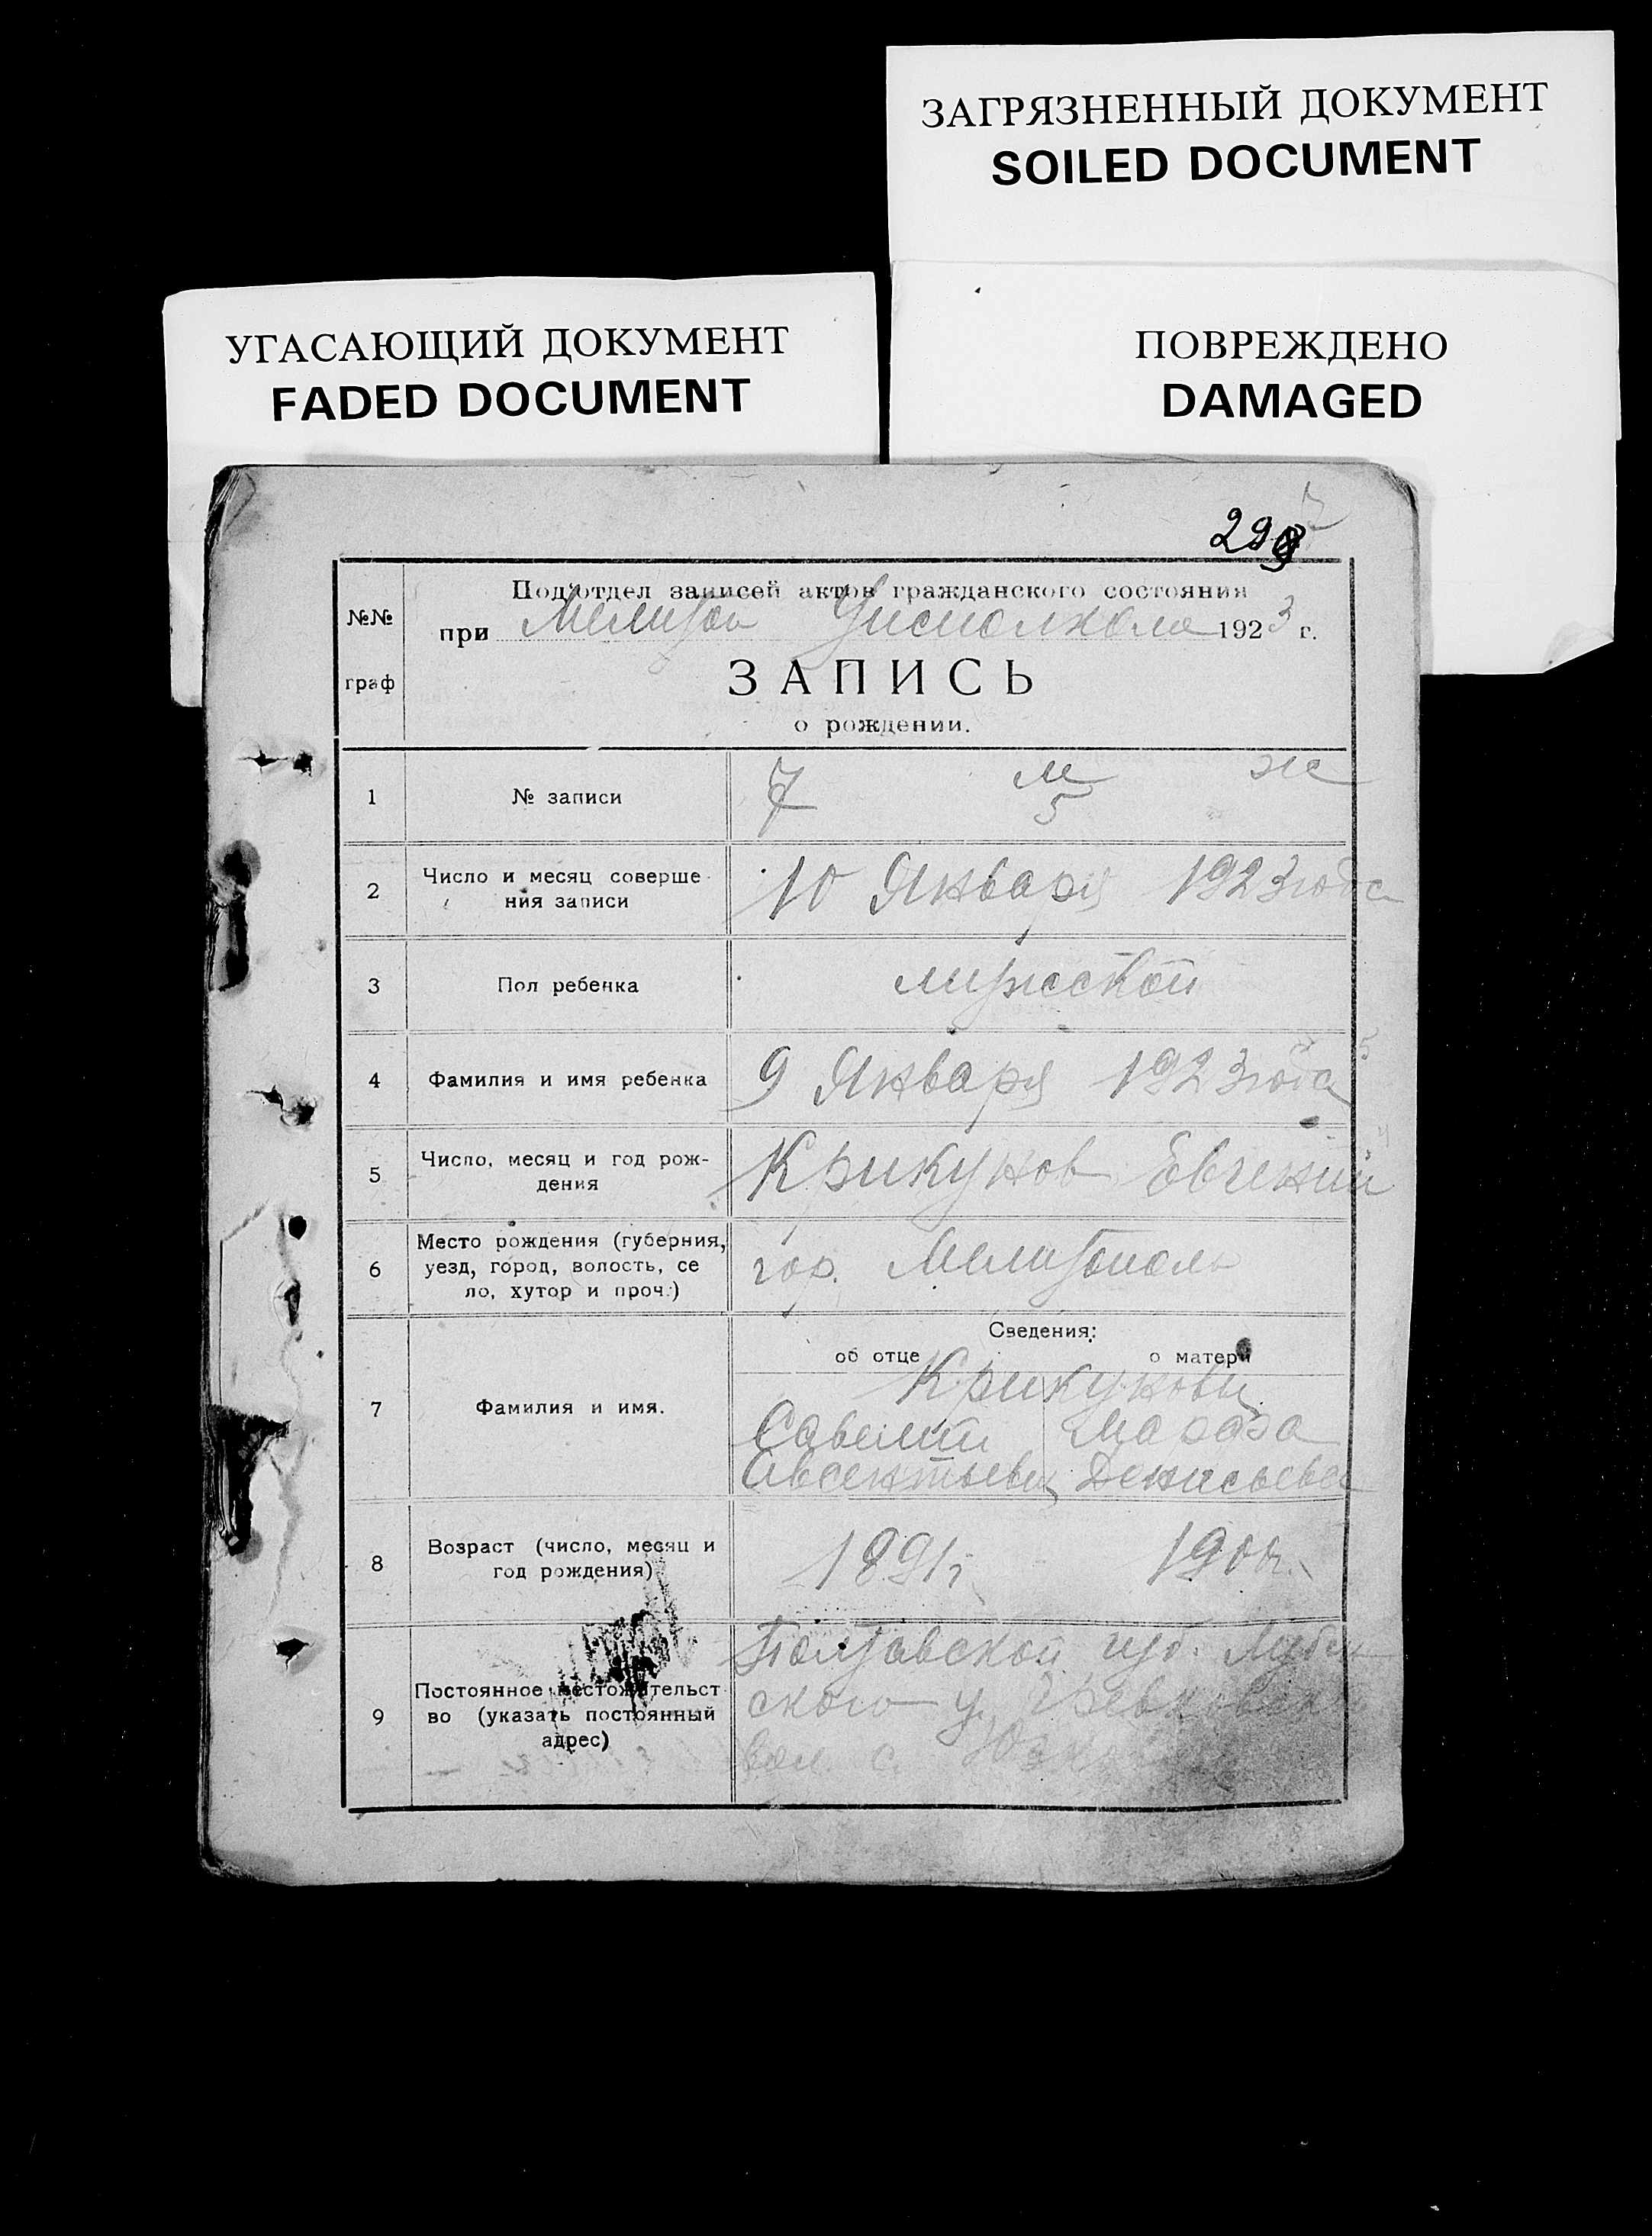 ЗАГРЯЗНЕННЫЙ ДОКУМЕНТ
SOILED DOCUMENT
УГАСАЮЩИЙ ДОКУМЕНТ
FADED DOCUMENT
ПОВРЕЖДЕНО
DAMAGED
Под'отдел записей актов гражданского состояния
№№ граф
при Мелитоп Уисполкоме 1923 г.
ЗАПИСЬ
о рождении.
1 № записи 7 м 5 ж
2 Число и месяц соверше-
ния записи 10 Января 1923 года
3 Пол ребенка мужской
4 Фамилия и имя ребенка 9 Января 1923 года
5 Число, месяц и год рож-
дения Крикунов Евгений
6 Место рождения (губерния,
уезд, город, волость, се
ло, хутор и проч.) гор. Мелитополь
Сведения:
об отце о матери
7 Фамилия и имя. Крикуновы
Савелий Мария
Авсентьевич Денисьевна
8 Возраст (число, месяц и
год рождения) 1891 г 1900 г.
9 Постоянное местожительст
во (указать постоянный
адрес) Полтавской губ. Лубен
ского у.
вол. с.